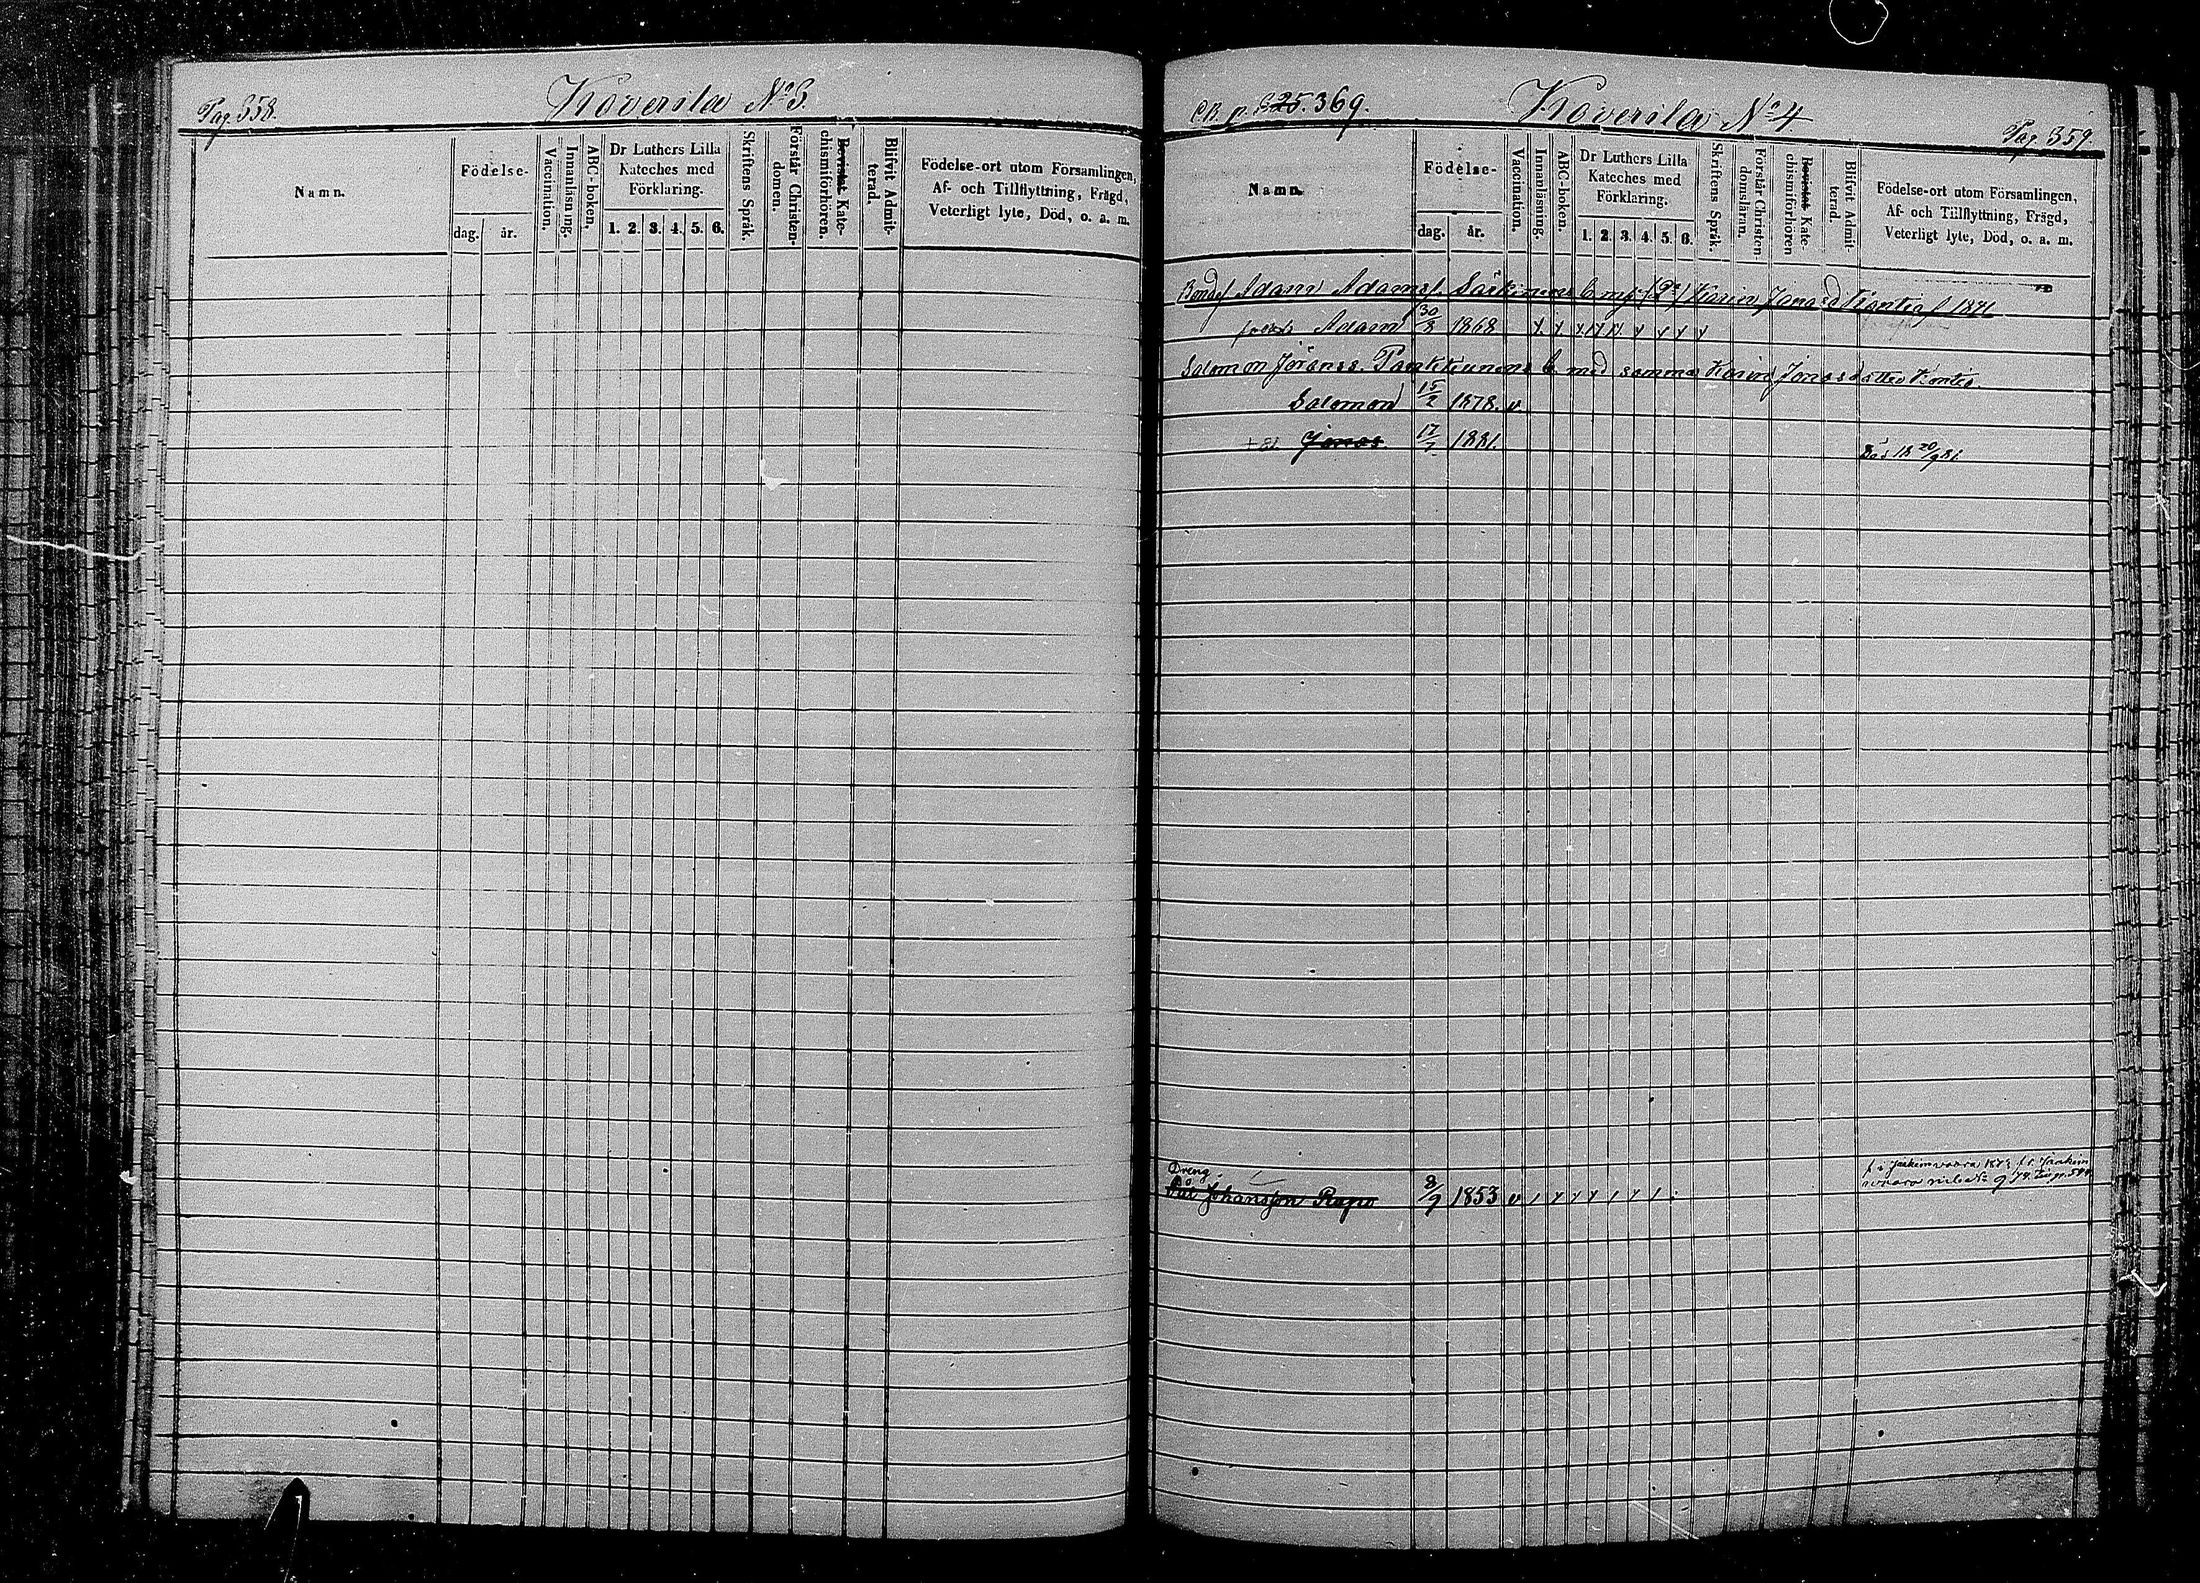 Pag. 358.
Koverila No 3.
Namn.
Födelse-
dag.
år.
Vaccination.
Innanläsning.
ABC-boken.
Dr Luthers Lilla
Kateches med
Förklaring.
1. 2. 3. 4. 5. 6.
Skriftens Språk.
Förstår Christen-
domen.
Bevistat Kate-
chismiförhören.
Blifvit Admit-
terad.
Födelse-ort utom Församlingen,
Af- och Tillflyttning, Frägd,
Veterligt lyte, Död, o. a. m.
CB. p. 325. 369.
Koverila No 4
Pag. 359.
Namn.
Födelse-
dag.
år.
Vaccination.
Innanläsning.
ABC-boken.
Dr Luthers Lilla
Kateches med
Förklaring.
1. 2. 3. 4. 5. 6.
Skriftens Språk.
Förstår Christen-
domsläran.
Bevistat Kate-
chismiförhören
Blifvit Admit-
terad.
Födelse-ort utom Församlingen,
Af- och Tillflyttning, Frägd,
Veterligt lyte, Död, o. a. m.
Adam Adams. Karin Jonasd 1871
Adam 30/8 1868
Salomon Jöranss. b. med samma Karin Jonasdotter Kontio.
Salomon 15/2 1878. v
+81. Jonas 17/7 1881. Död 18 20/9 81.
Dreng
Pål Johansson Repo 8/9 1853 v